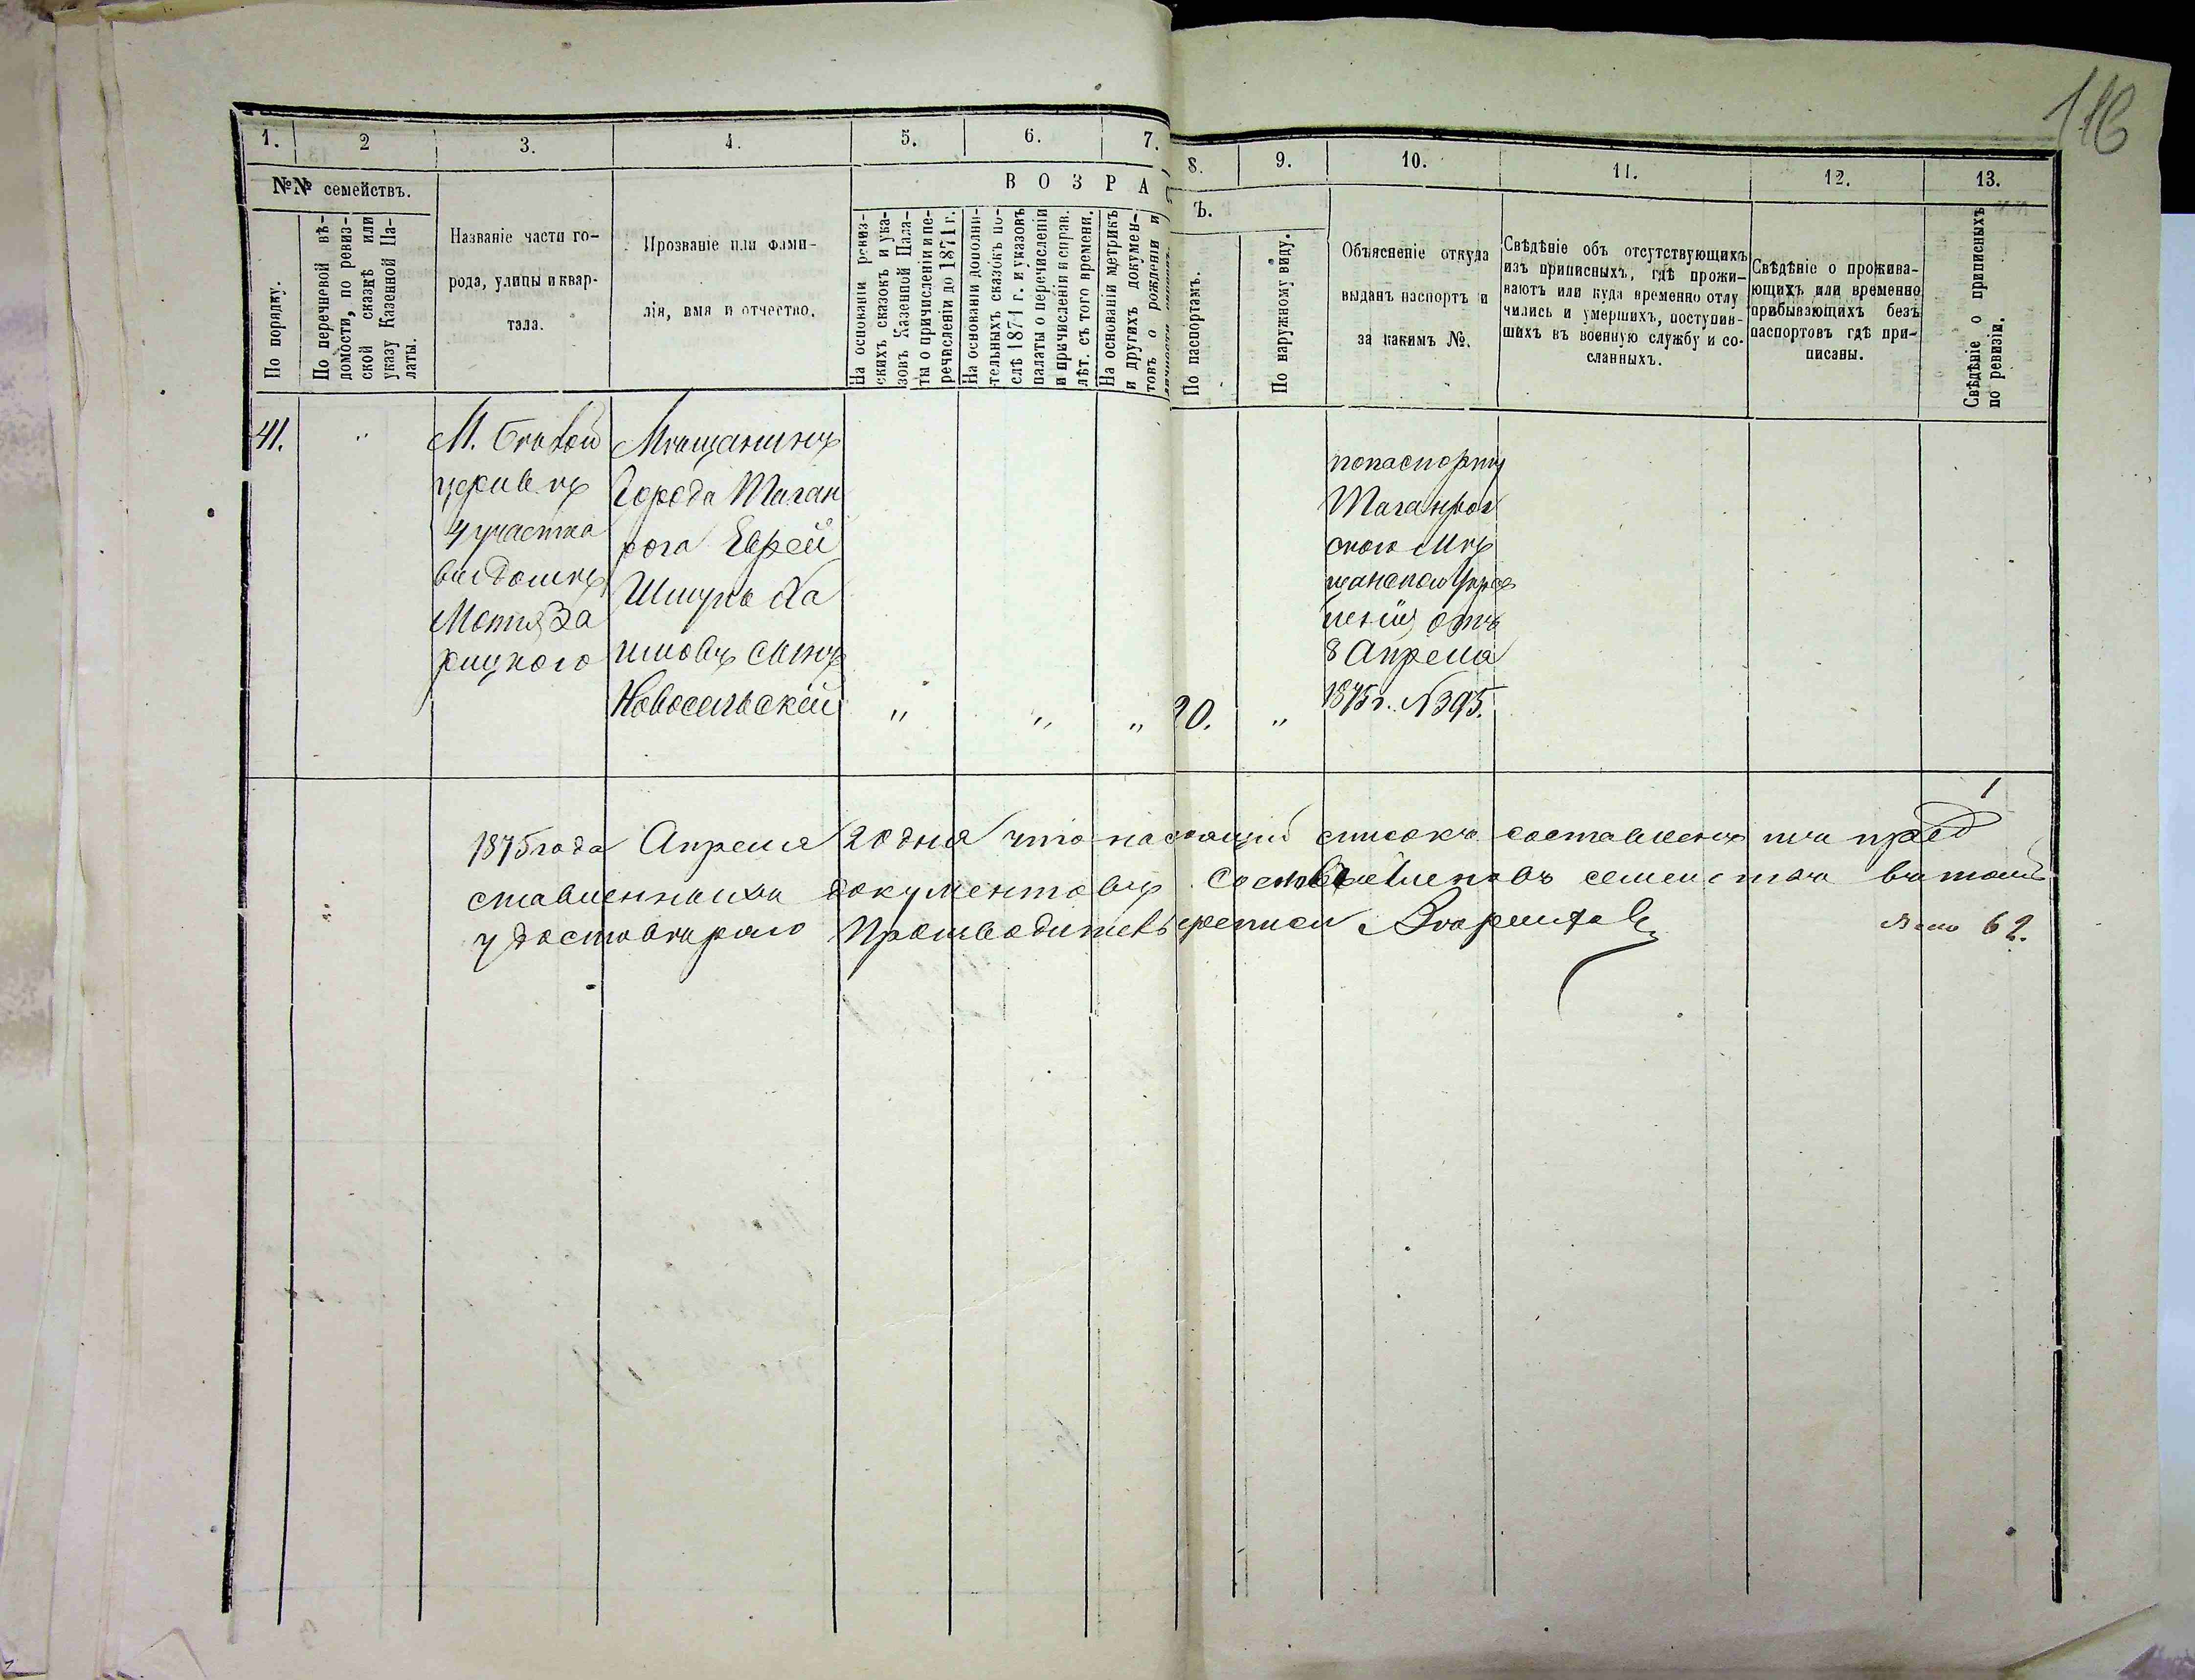 116
1. 2 3. 4. 5. 6. 7. 8. 9. 10. 11. 12. 13.
№№ семействъ.
По порядку.
По перечневой вѣ-
домости, по ревиз-
ской сказкѣ или
указу Казенной Па-
латы.
Названіе части го-
рода, улицы и квар-
тала.
Прозваніе или фами-
лія, имя и отчество.
В О З Р А
Ъ.
На основаніи ревиз-
скихъ сказокъ и ука-
зовъ Казенной Пала-
ты о причисленіи и пе-
речисленіи до 1871 г.
На основаніи дополни-
тельныхъ сказокъ по-
слѣ 1871 г. и указовъ
палаты о перечисленіи
и причисленіи и справ.
лѣт. съ того времени.
На основаніи метрикъ
и другихъ докумен-
товъ о рожденіи и
По паспортамъ.
По наружному виду.
Объясненіе откуда
выданъ паспортъ и
за какимъ №.
Свѣдѣніе объ отсутствующихъ
изъ приписныхъ, гдѣ прожи-
ваютъ или куда временно отлу
чились и умершихъ, поступив-
шихъ въ военную службу и со-
сланныхъ.
Свѣдѣніе о прожива-
ющихъ или временно
прибывающихъ безъ
паспортовъ гдѣ при-
писаны.
Свѣдѣніе о приписныхъ
по ревизіи.
41.
"
М. Бѣлой
церквѣ
4 участка
въ домѣ
Мотя За
рицкого
Мѣщанинъ
Города Таган
рога Еврей
Шмуль
шмовъ сынъ
Новосельскій
" " " 20. "
попаспорту
Таганрог
ского Мѣ
щанской Упра
вленія отъ
8 Апреля
1875 г. №395.
1
1875 года Апреля 20 дня что настоящій списокъ составленъ пред
ставленныхъ документовъ семействъ въ томъ
удостовѣряю Производитель переписи
62.